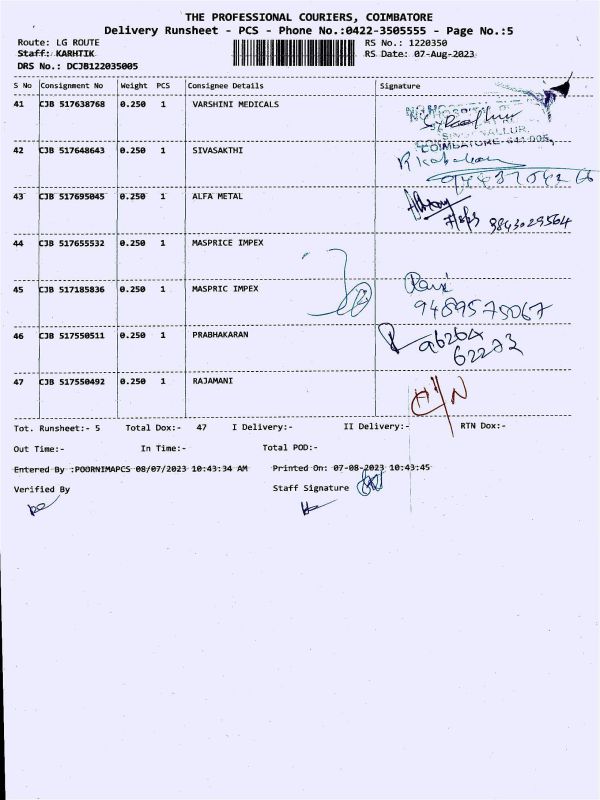 THE PROFESSIONAL COURIERS, COIMBATORE
Delivery Runsheet - PCS - Phone No.:0422-3505555 - Page No.:5
Route: LG ROUTE RS No.: 1220350
Staff: KARHTIK RS Date: 07-Aug-2023
DRS No.: DCJB122035005
S No Consignment No Weight PCS Consignee Details Signature
41 CJB 517638768 0.250 1 VARSHINI MEDICALS
COIMBATORE-641 005.
42 CJB 517648643 0.250 1 SIVASAKTHI
43 CJB 517695045 0.250 1 ALFA METAL
9843029564
44 CJB 517655532 0.250 1 MASPRICE IMPEX
45 CJB 517185836 0.250 1 MASPRIC IMPEX
9489575067
46 CJB 517550511 0.250 1 PRABHAKARAN
62273
47 CJB 517550492 0.250 1 RAJAMANI
Tot. Runsheet:- 5 Total Dox:- 47 I Delivery:- II Delivery:- RTN Dox:-
Out Time:- In Time:- Total POD:-
Entered By :POORNIMAPCS 08/07/2023 10:43:34 AM Printed On: 07-08-2023 10:43:45
Verified By Staff Signature